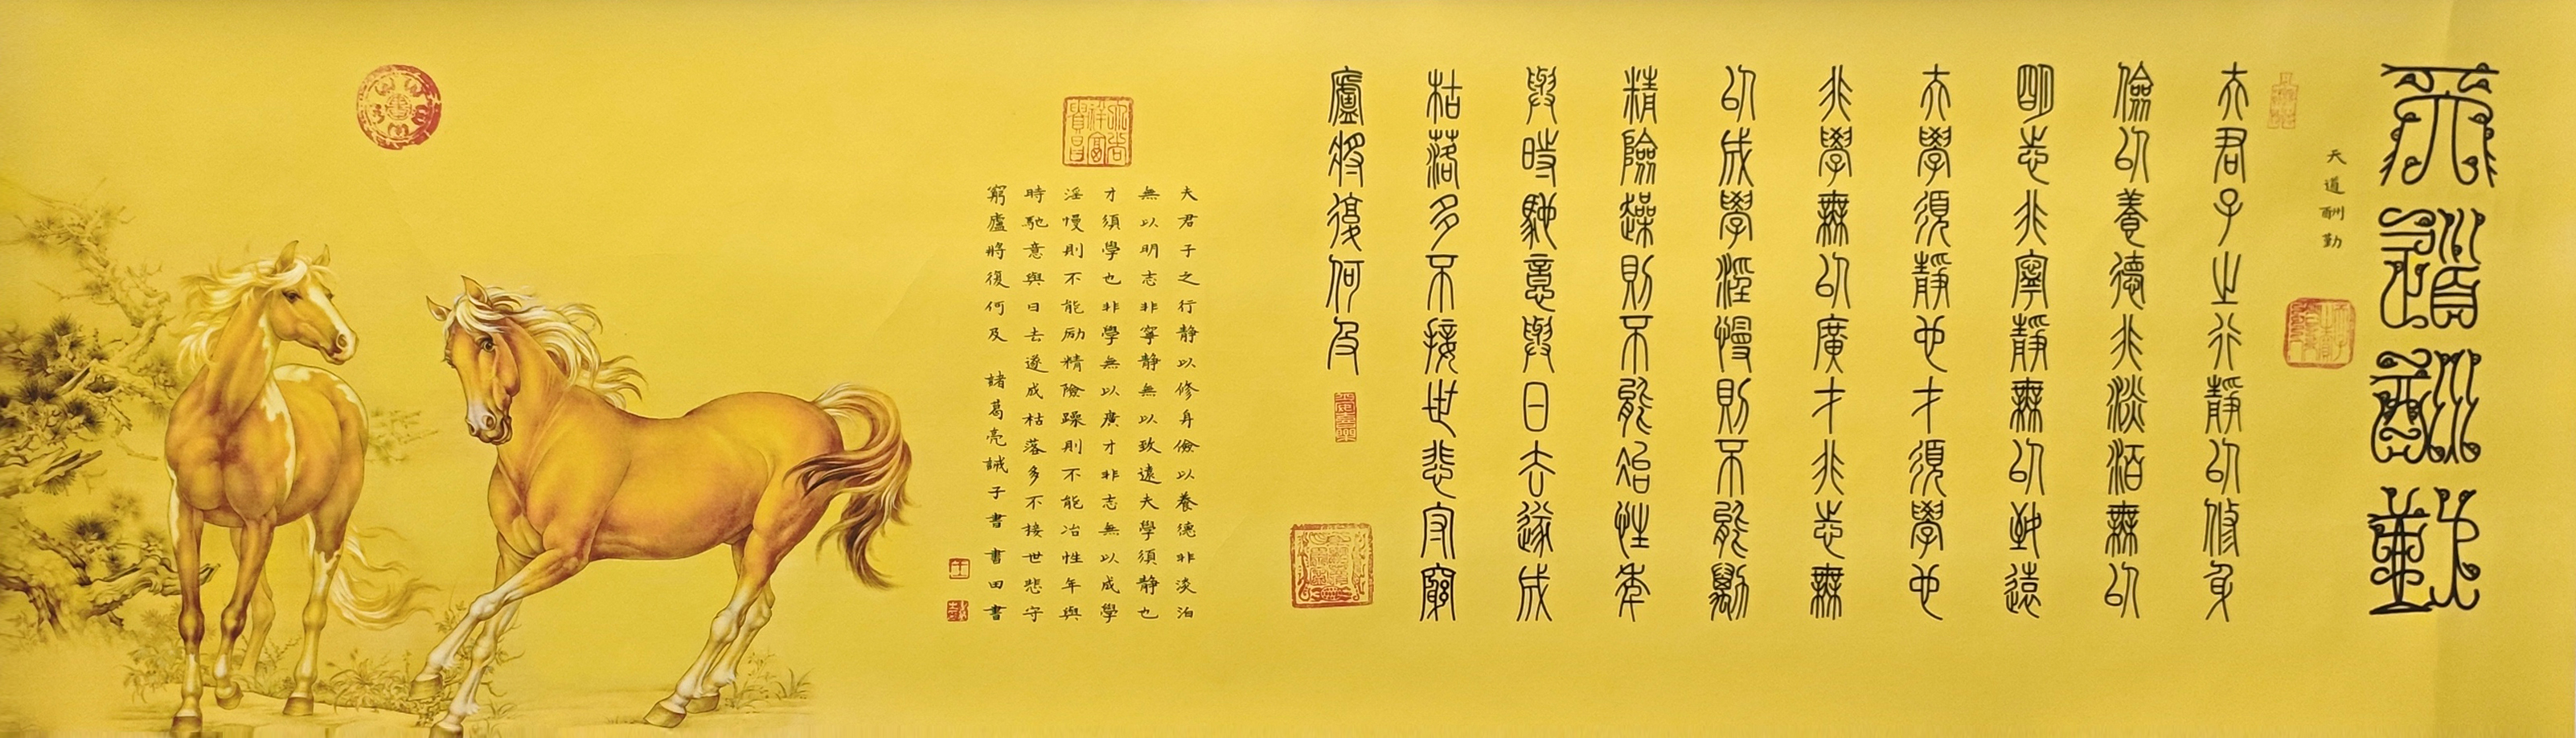 天道酬勤
天道酬勤
夫君子之行靜以修身
儉以養德非淡泊無以
明志非寧靜無以致遠
夫學須靜也才須學也
非學無以廣才非志無
以成學淫慢則不能勵
精險躁則不能冶性年
與時馳意與日去遂成
枯落多不接世悲守窮
廬將復何及
夫君子之行静以修身儉以養德非淡泊
無以明志非寧静無以致遠夫學須静也
才須學也非學無以廣才非志無以成學
淫慢則不能励精險躁則不能冶性年與
時馳意與日去遂成枯落多不接世悲守
窮廬將復何及 諸葛亮誡子書 書田書